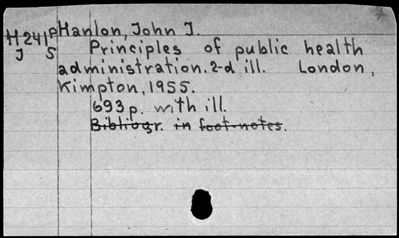 H241p Hanlon, John J.
J 5 Principles of public health
administration. 2-d ill. London,
Kimpton, 1955.
693 p. with ill.
Bibliogr. in foot-notes.